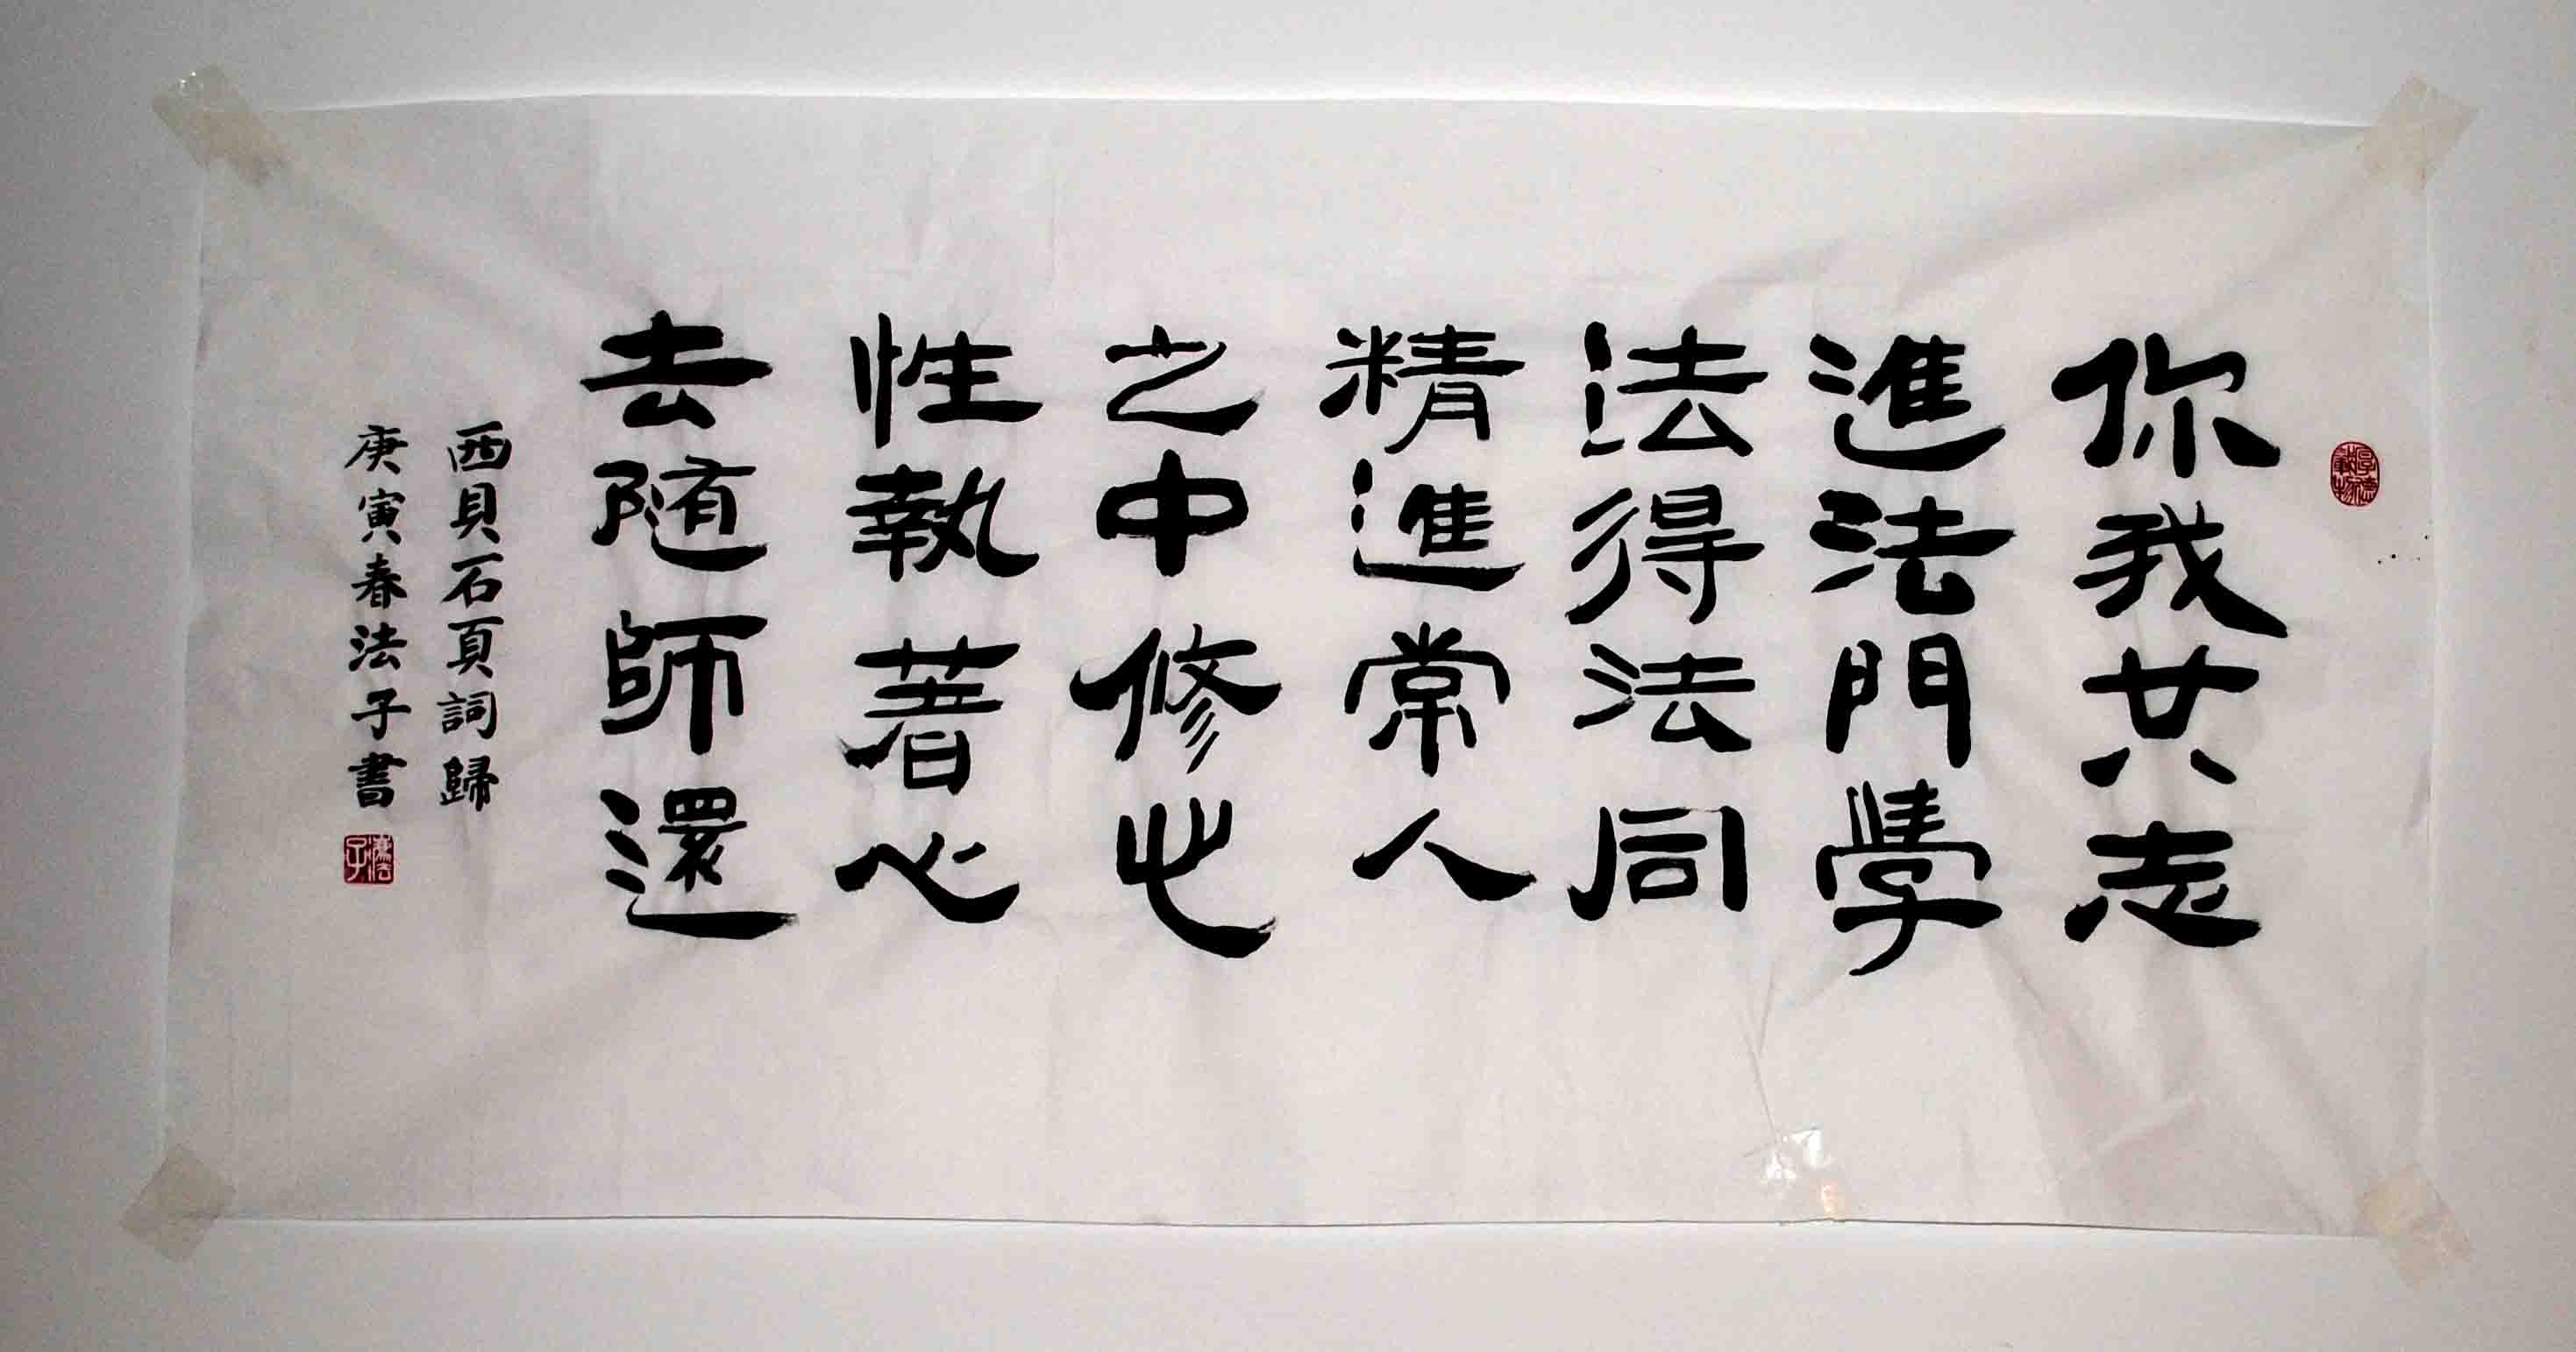 你我共志
進法門學
法得法同
精進常人
之中修心
性執著心
去随師還
西貝石頁詞歸
庚寅春法子書